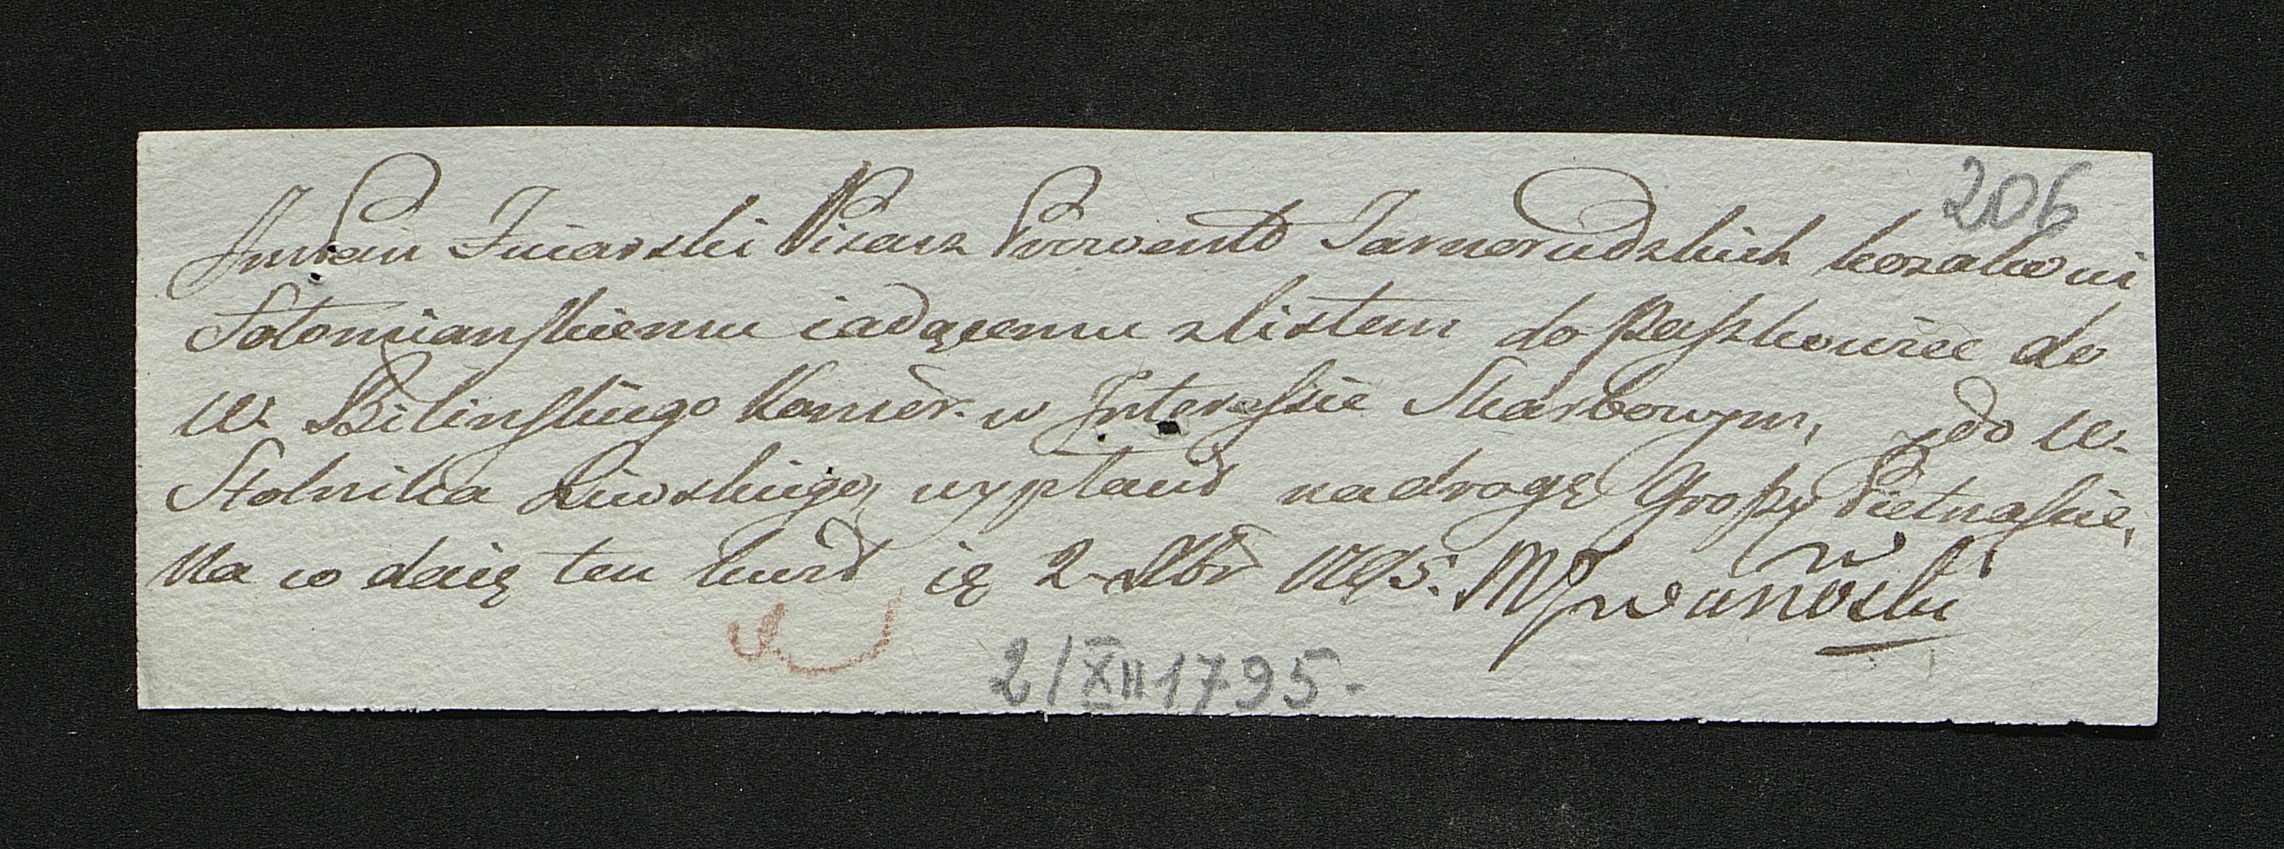 206
JmPan Zniarski Pisarz Prowentő Tarnorudzkich kozakowi
Sołomianskiemu iadącemu z listem do Paszkowiec do
W. Bilinskiego Kamer. w Interessie Skarbowym, y do W.
Stolnika wypłacić na drogę Groszy Pietnascie,
Na co daię ten kwit ię 2 Xbr 1795.
2/XII 1795.